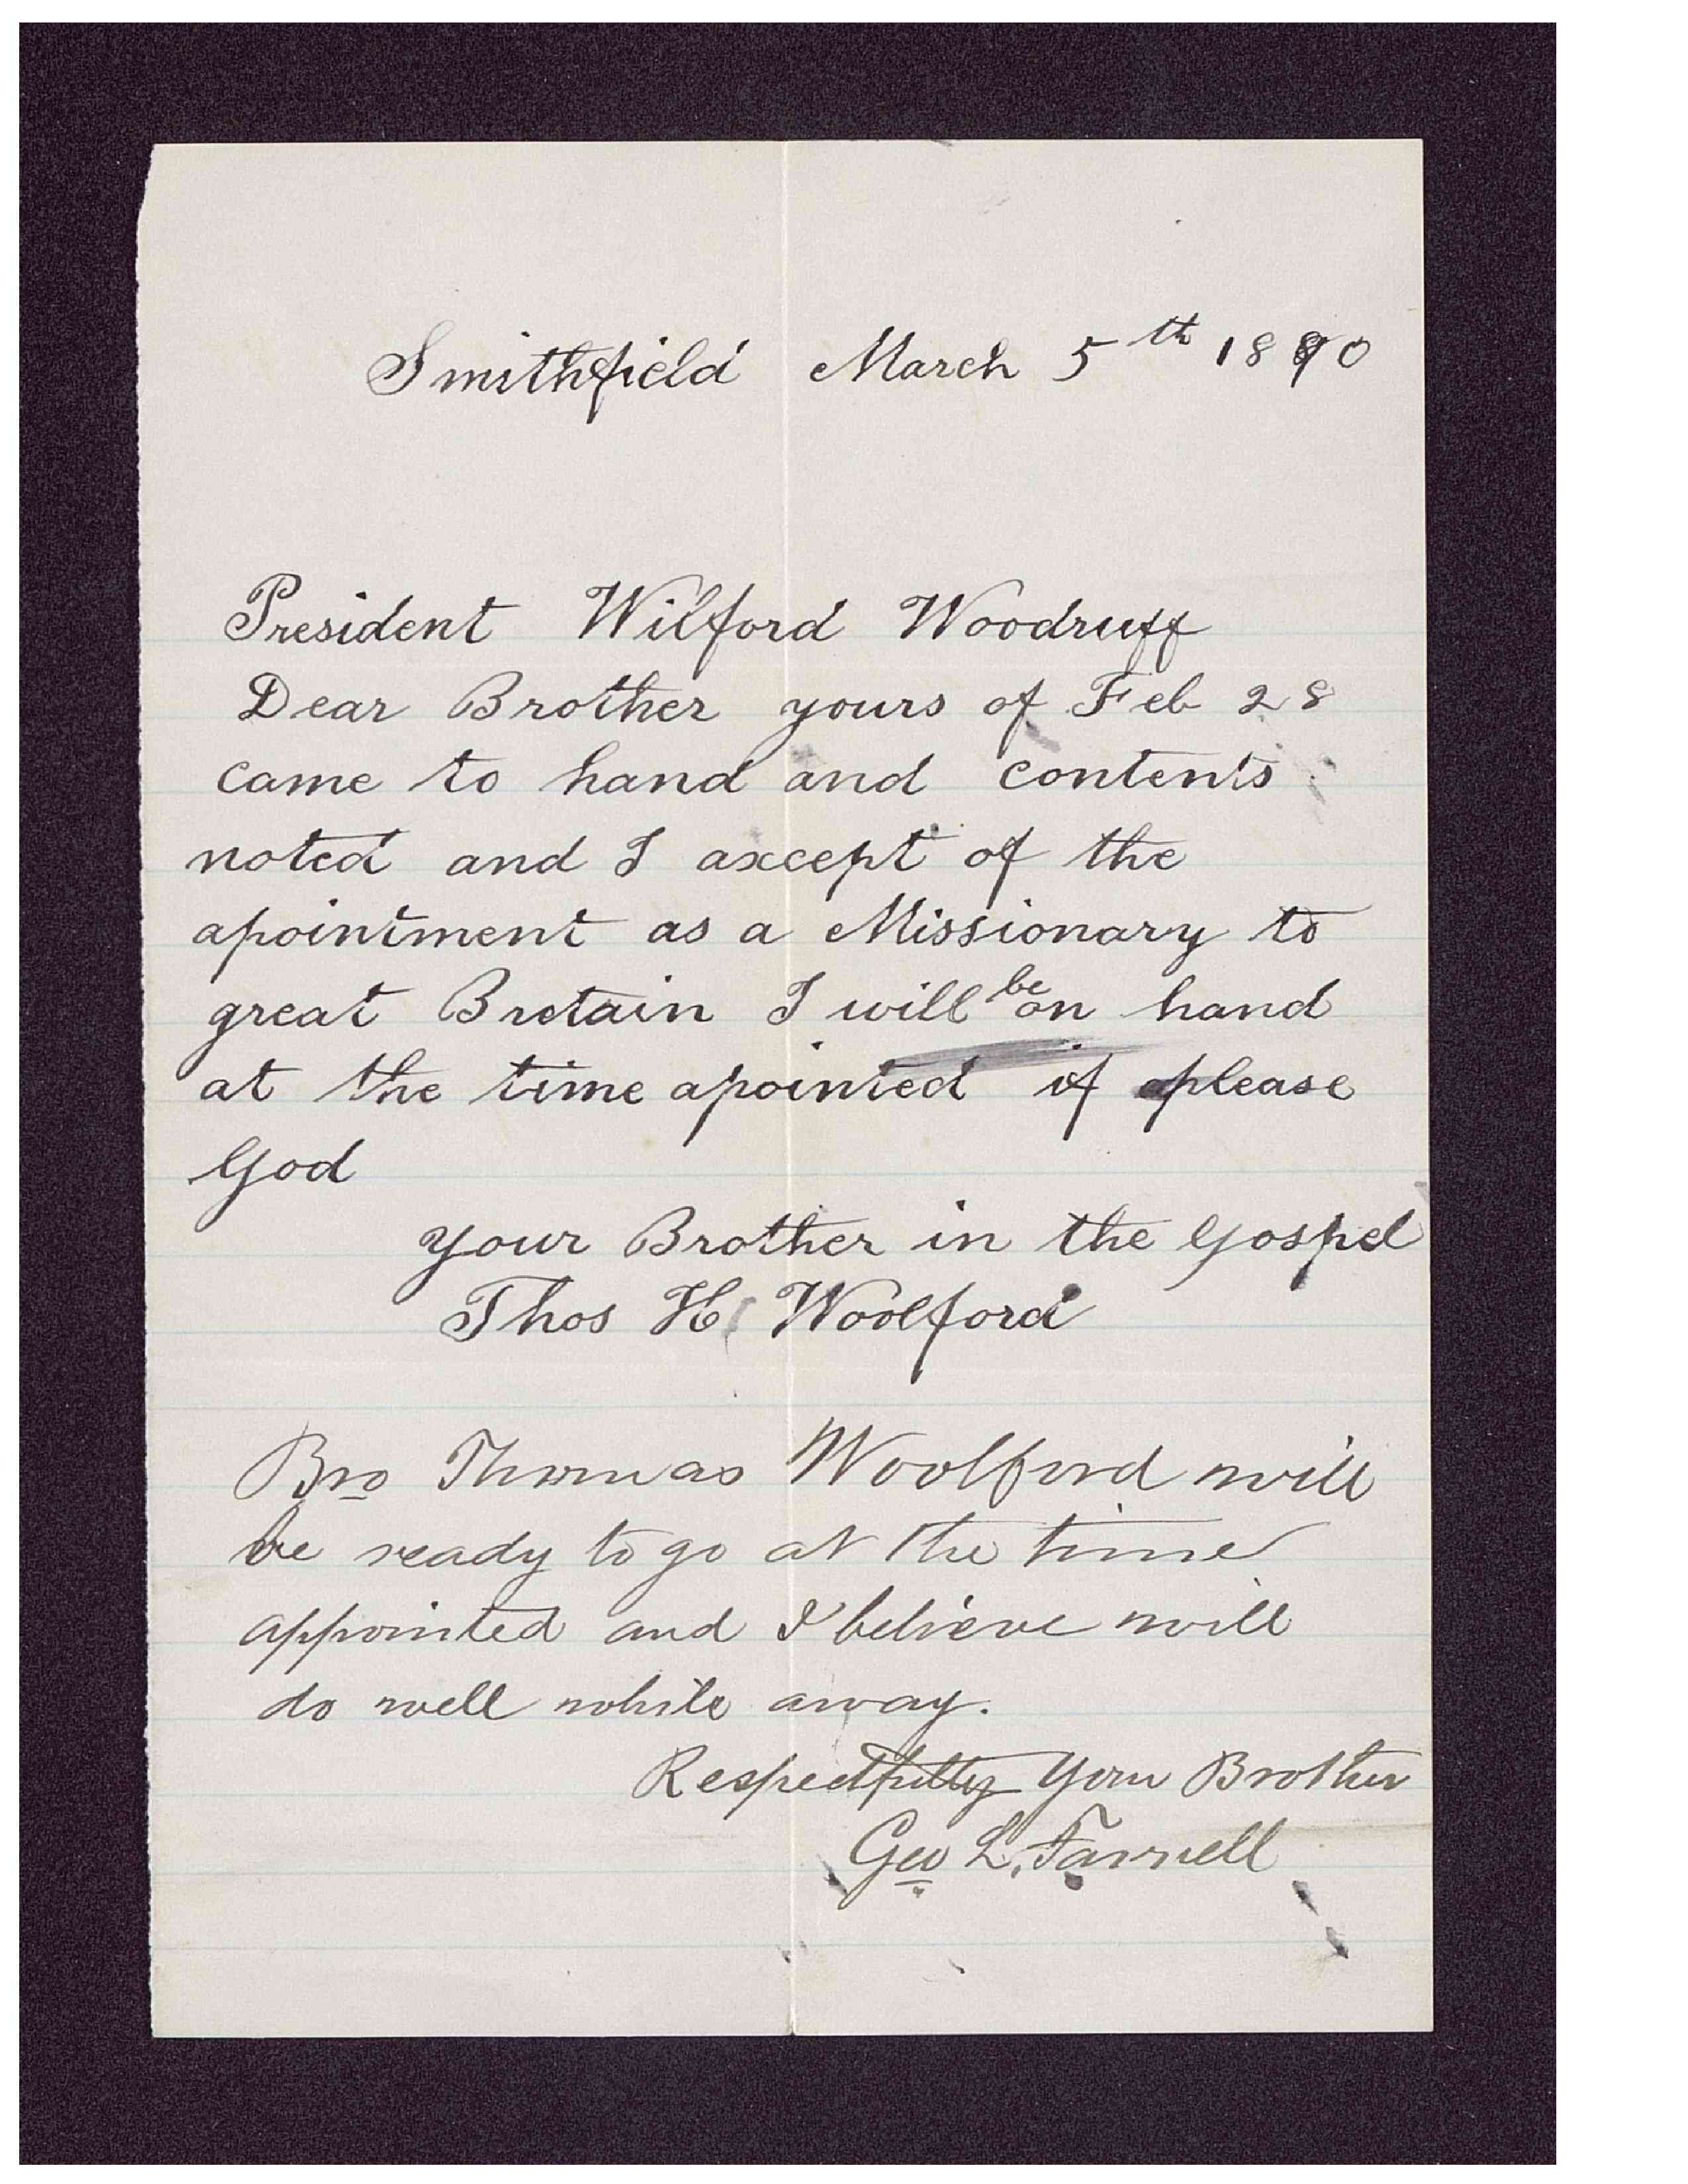 Smithfield March 5th 1890
President Wilford Woodruff
Dear Brother yours of Feb 28
came to hand and contents
noted and I axcept of the
apointment as a Missionary to
great Bretain I will be on hand
at the time apointed if please
God
your Brother in the Gospel
Thos H Woolford
Bro Thomas Woolford will
be ready to go at the time
appointed and I believe will
do well while away.
Respectfully Your Brother
Geo L. Farrell